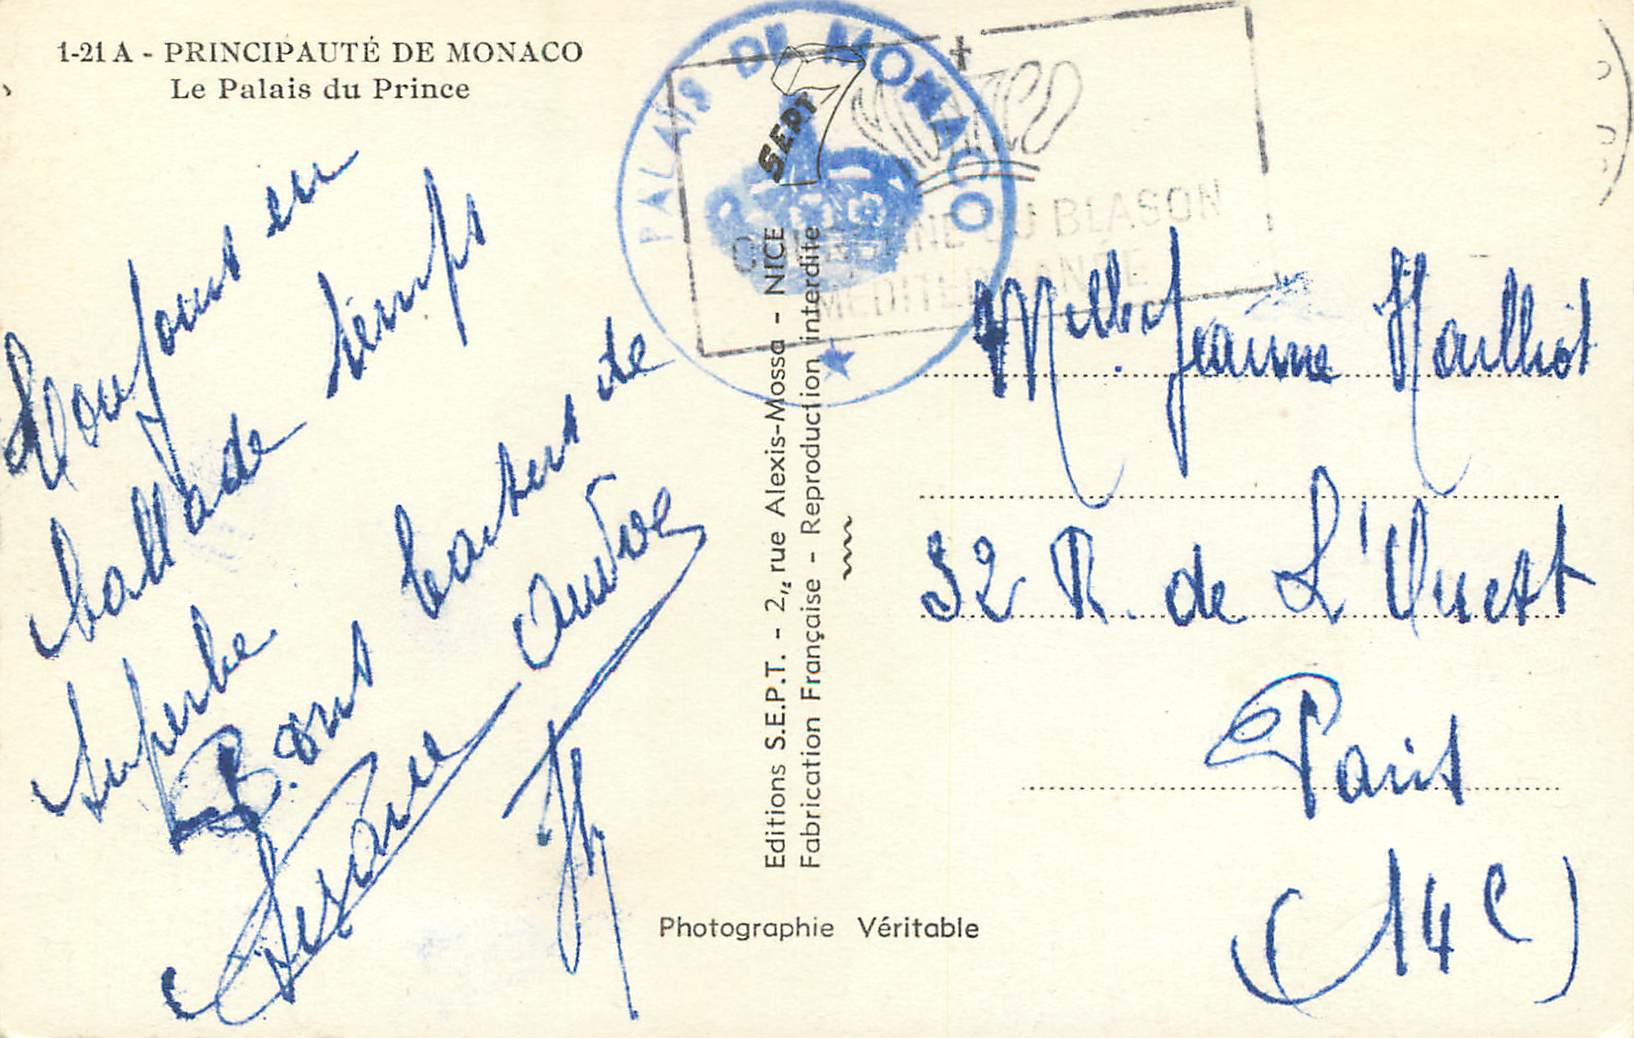 1-21 A - PRINCIPAUTÉ DE MONACO
Le Palais du Prince
PALAIS DE MONACO
SEPT 7
DU BLASON
Toujours en
ballade temps
superbe
Bons baisers de
Suzanne
Editions S.E.P.T. - 2, rue Alexis-Mossa - NICE
Fabrication Française - Reproduction interdite
Photographie Véritable
Melle Jeanne Mailliot
32 R. de L'Ouest
Paris
(14e)